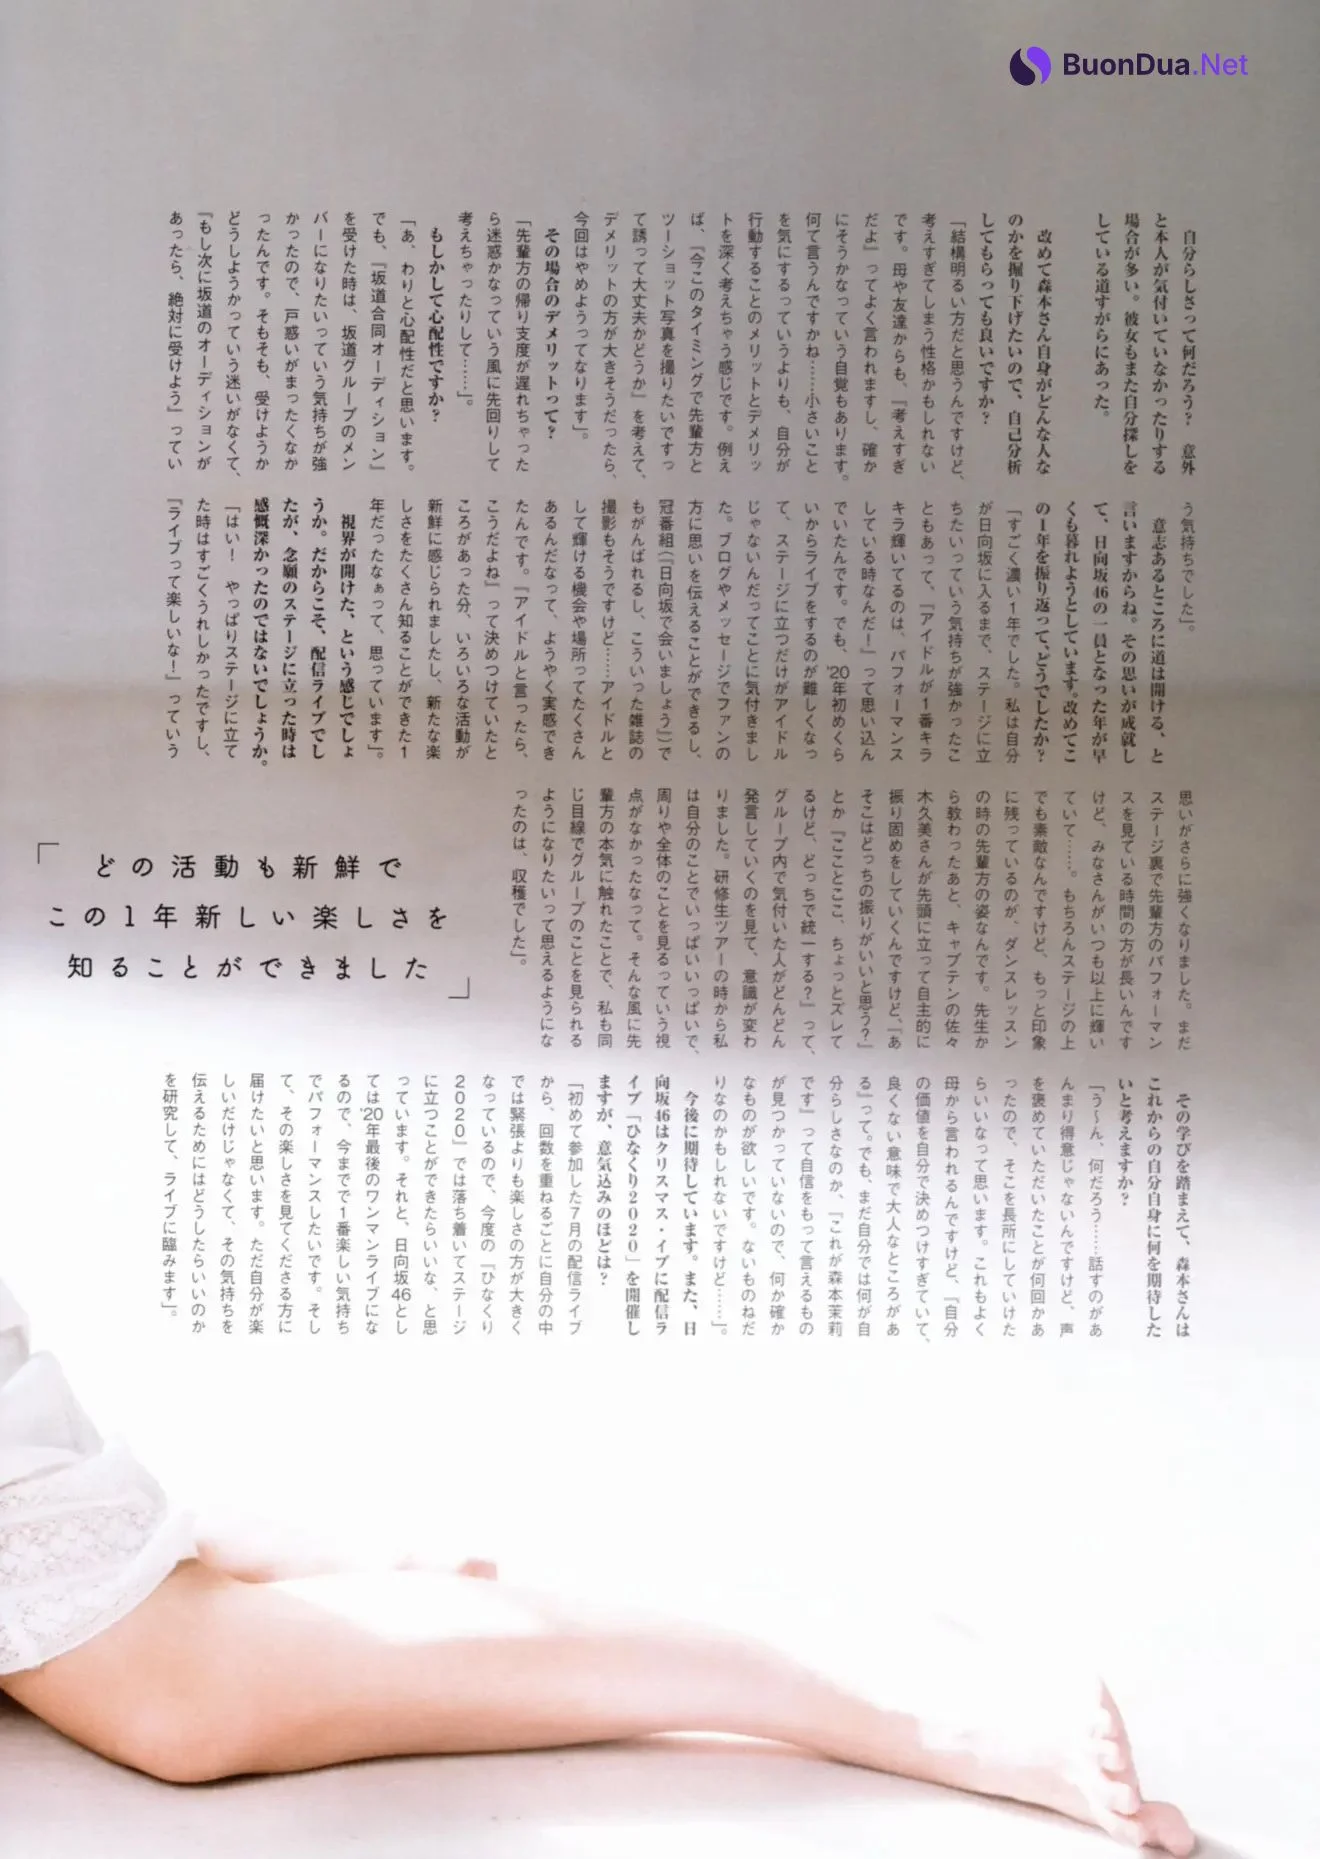 BuonDua.Net
自分らしさって何だろう？　意外
と本人が気付いていなかったりする
場合が多い。彼女もまた自分探しを
している道すがらにあった。
改めて森本さん自身がどんな人な
のかを掘り下げたいので、自己分析
してもらっても良いですか？
「結構明るい方だと思うんですけど、
考えすぎてしまう性格かもしれない
です。母や友達からも、『考えすぎ
だよ』ってよく言われますし、確か
にそうかなっていう自覚もあります。
何て言うんですかね……小さいこと
を気にするっていうよりも、自分が
行動することのメリットとデメリッ
トを深く考えちゃう感じです。例え
ば、『今このタイミングで先輩方と
ツーショット写真を撮りたいですっ
て誘って大丈夫かどうか』を考えて、
デメリットの方が大きそうだったら、
今回はやめようってなります」。
その場合のデメリットって？
「先輩方の帰り支度が遅れちゃった
ら迷惑かなっていう風に先回りして
考えちゃったりして……」。
もしかして心配性ですか？
「あ、わりと心配性だと思います。
でも、『坂道合同オーディション』
を受けた時は、坂道グループのメン
バーになりたいっていう気持ちが強
かったので、戸惑いがまったくなか
ったんです。そもそも、受けようか
どうしようかっていう迷いがなくて、
『もし次に坂道のオーディションが
あったら、絶対に受けよう』ってい
う気持ちでした」。
意志あるところに道は開ける、と
言いますからね。その思いが成就し
て、日向坂46の一員となった年が早
くも暮れようとしています。改めてこ
の1年を振り返って、どうでしたか？
「すごく濃い1年でした。私は自分
が日向坂に入るまで、ステージに立
ちたいっていう気持ちが強かったこ
ともあって、『アイドルが1番キラ
キラ輝いてるのは、パフォーマンス
している時なんだ！』って思い込ん
でいたんです。でも、'20年初めくら
いからライブをするのが難しくなっ
て、ステージに立つだけがアイドル
じゃないんだってことに気付きまし
た。ブログやメッセージでファンの
方に思いを伝えることができるし、
冠番組(『日向坂で会いましょう』)で
もがんばれるし、こういった雑誌の
撮影もそうですけど……アイドルと
して輝ける機会や場所ってたくさん
あるんだなって、ようやく実感でき
たんです。『アイドルと言ったら、
こうだよね』って決めつけていたと
ころがあった分、いろいろな活動が
新鮮に感じられましたし、新たな楽
しさをたくさん知ることができた1
年だったなぁって、思っています」。
視界が開けた、という感じでしょ
うか。だからこそ、配信ライブでし
たが、念願のステージに立った時は
感慨深かったのではないでしょうか。
「はい！　やっぱりステージに立て
た時はすごくうれしかったですし、
『ライブって楽しいな！』っていう
思いがさらに強くなりました。まだ
ステージ裏で先輩方のパフォーマン
スを見ている時間の方が長いんです
けど、みなさんがいつも以上に輝い
ていて……。もちろんステージの上
でも素敵なんですけど、もっと印象
に残っているのが、ダンスレッスン
の時の先輩方の姿なんです。先生か
ら教わったあと、キャプテンの佐々
木久美さんが先頭に立って自主的に
振り固めをしていくんですけど、『あ
そこはどっちの振りがいいと思う？』
とか『こことここ、ちょっとズレて
るけど、どっちで統一する？』って、
グループ内で気付いた人がどんどん
発言していくのを見て、意識が変わ
りました。研修生ツアーの時から私
は自分のことでいっぱいいっぱいで、
周りや全体のことを見るっていう視
点がなかったなって。そんな風に先
輩方の本気に触れたことで、私も同
じ目線でグループのことを見られる
ようになりたいって思えるようにな
ったのは、収穫でした」。
「どの活動も新鮮で
この1年新しい楽しさを
知ることができました」
その学びを踏まえて、森本さんは
これからの自分自身に何を期待した
いと考えますか？
「う〜ん、何だろう……話すのがあ
んまり得意じゃないんですけど、声
を褒めていただいたことが何回かあ
ったので、そこを長所にしていけた
らいいなって思います。これもよく
母から言われるんですけど、『自分
の価値を自分で決めつけすぎていて、
良くない意味で大人なところがあ
る』って。でも、まだ自分では何が自
分らしさなのか、『これが森本茉莉
です』って自信をもって言えるもの
が見つかっていないので、何か確か
なものが欲しいです。ないものねだ
りなのかもしれないですけど……」。
今後に期待しています。また、日
向坂46はクリスマス・イブに配信ラ
イブ「ひなくり2020」を開催し
ますが、意気込みのほどは？
「初めて参加した7月の配信ライブ
から、回数を重ねるごとに自分の中
では緊張よりも楽しさの方が大きく
なっているので、今度の『ひなくり
2020』では落ち着いてステージ
に立つことができたらいいな、と思
っています。それと、日向坂46とし
ては'20年最後のワンマンライブにな
るので、今までで1番楽しい気持ち
でパフォーマンスしたいです。そし
て、その楽しさを見てくださる方に
届けたいと思います。ただ自分が楽
しいだけじゃなくて、その気持ちを
伝えるためにはどうしたらいいのか
を研究して、ライブに臨みます」。